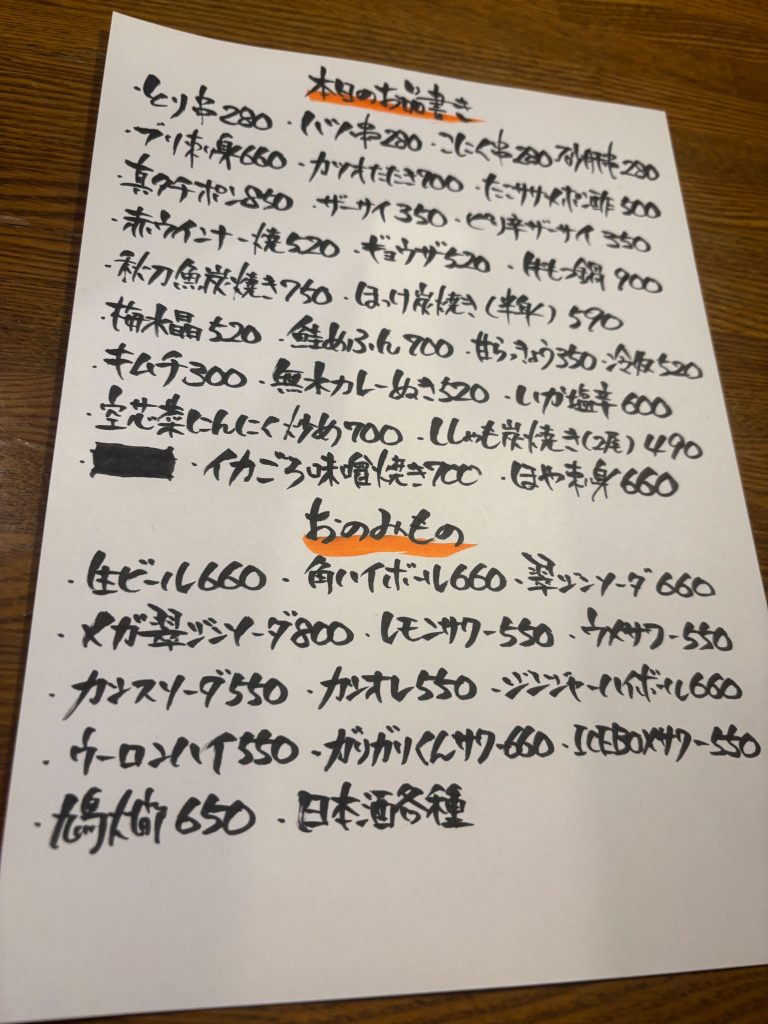 本日のお品書き
・とり串280 ・ハツ串280 ・こにく串280 砂肝串280
・ブリ刺身660 ・カツオたたき700 ・たこササメポン酢500
・真ダチポン850 ・ザーサイ350 ・ピリ辛ザーサイ350
・赤ウインナー焼520 ・ギョウザ520 ・牛もつ鍋900
・秋刀魚炭焼き750 ・ほっけ炭焼き(半身)590
・梅水晶520 ・鮭めふん700 ・甘らっきょう350 ・冷奴520
・キムチ300 ・無水カレーぬき520 ・いか塩辛600
・空芯菜にんにく炒め700 ・ししゃも炭焼き(2尾)490
・ ・イカごろ味噌焼き700 ・ほや刺身660
おのみもの
・生ビール660 ・角ハイボール660 ・翠ジンソーダ660
・メガ翠ジンソーダ800 ・レモンサワー550 ・ウメサワー550
・カシスソーダ550 ・カシオレ550 ・ジンジャーハイボール660
・ウーロンハイ550 ・ガリガリくんサワー660 ・ICEBOXサワー550
・650 ・日本酒各種